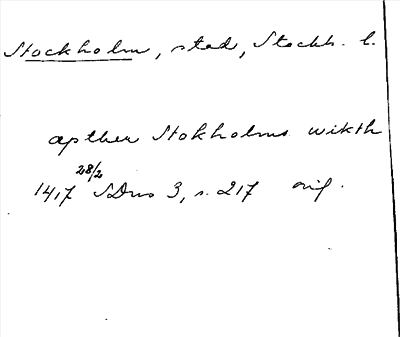 Stockholm, stad, Stockh. l.
apther Stokholms wikth
28/2
1417 SDns 3, s. 217 orig.